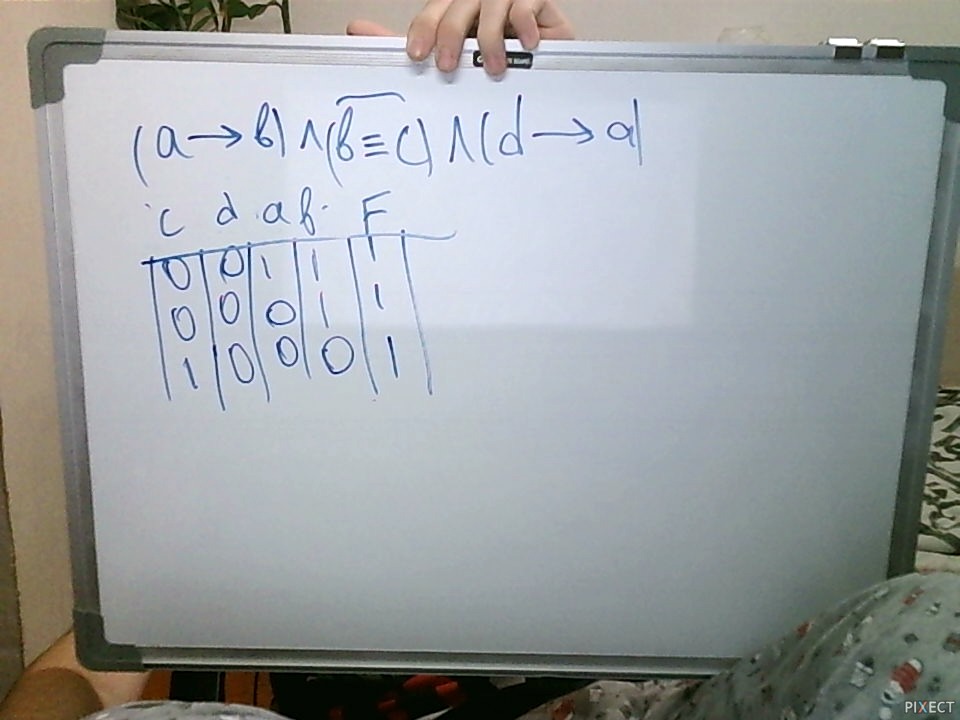 (a → b) ∧ (b̅ ̅≡̅ ̅c̅) ∧ (d → a)
c d a b F
0 0 1 1 1
0 0 0 1 1
1 0 0 0 1
PIXECT